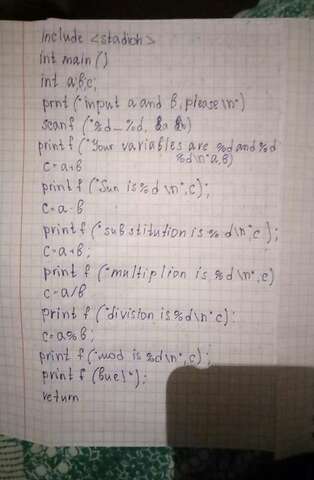 include <stadioh>
int main()
int a,b,c;
prnt ("input a and b, please \n")
scanf ("%d_%d, &a &b)
printf ("Your variables are %d and %d
%d \n" a, b)
c=a+b
printf ("Sun is %d \n", c);
c=a-b
printf ("substitution is % d\n" c );
c=a+b;
print f ("multiplion is %d \n", c)
c=a/b
printf ("division is %d \n" c);
c=a%b;
print f ("mod is %d\n", c);
print f (buel");
return